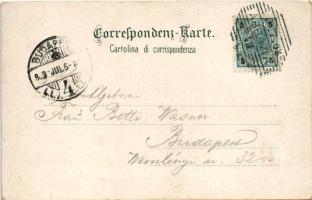 Correspondenz-Karte.
Cartolina di corrispondenza
BUDAPEST
JUL. 6
4
5 5
Frau Betti Wasner
Budapest
Wesselényi u. 32